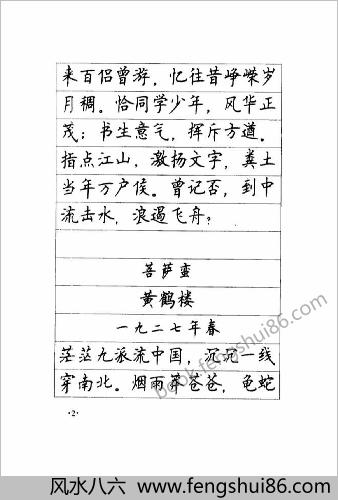 来百侣曾游，忆往昔峥嵘岁
月稠。恰同学少年，风华正
茂；书生意气，挥斥方遒。
指点江山，激扬文字，粪土
当年万户侯。曾记否，到中
流击水，浪遏飞舟？
菩萨蛮
黄鹤楼
一九二七年春
茫茫九派流中国，沉沉一线
穿南北。烟雨莽苍苍，龟蛇
·2·
book.fengshui86.com
风水八六 www.fengshui86.com